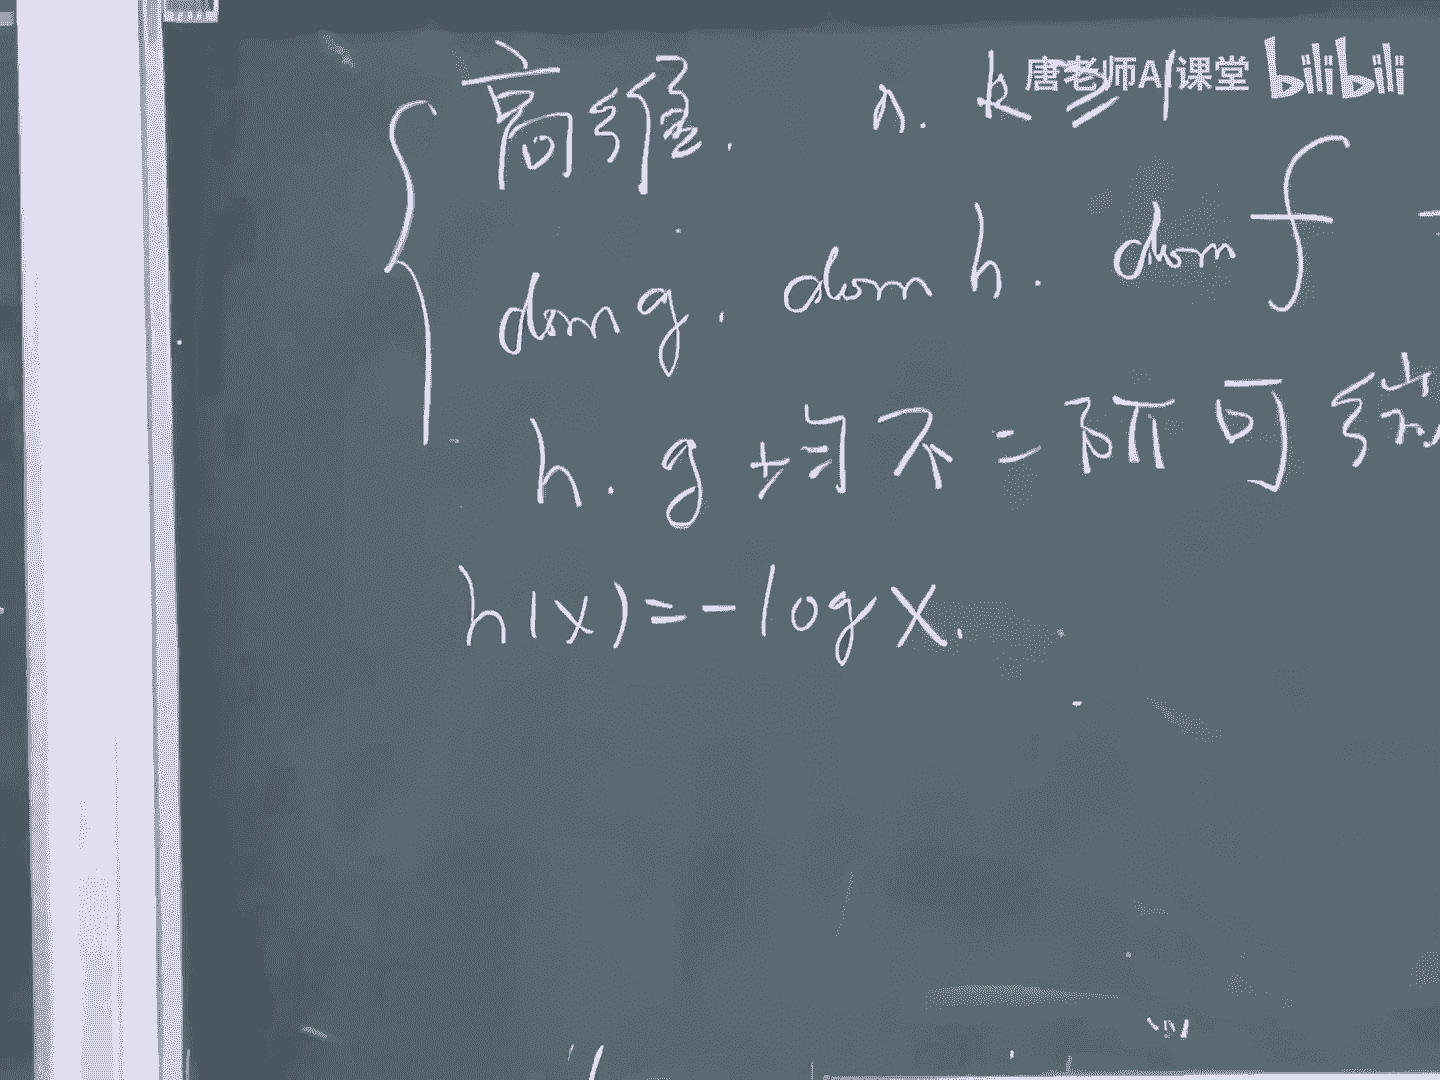 唐老师AI课堂 bilibili
高维. n. k ≥ 1
dom g. dom h. dom f
h. g 均不二阶可微
h(x)=-log x.